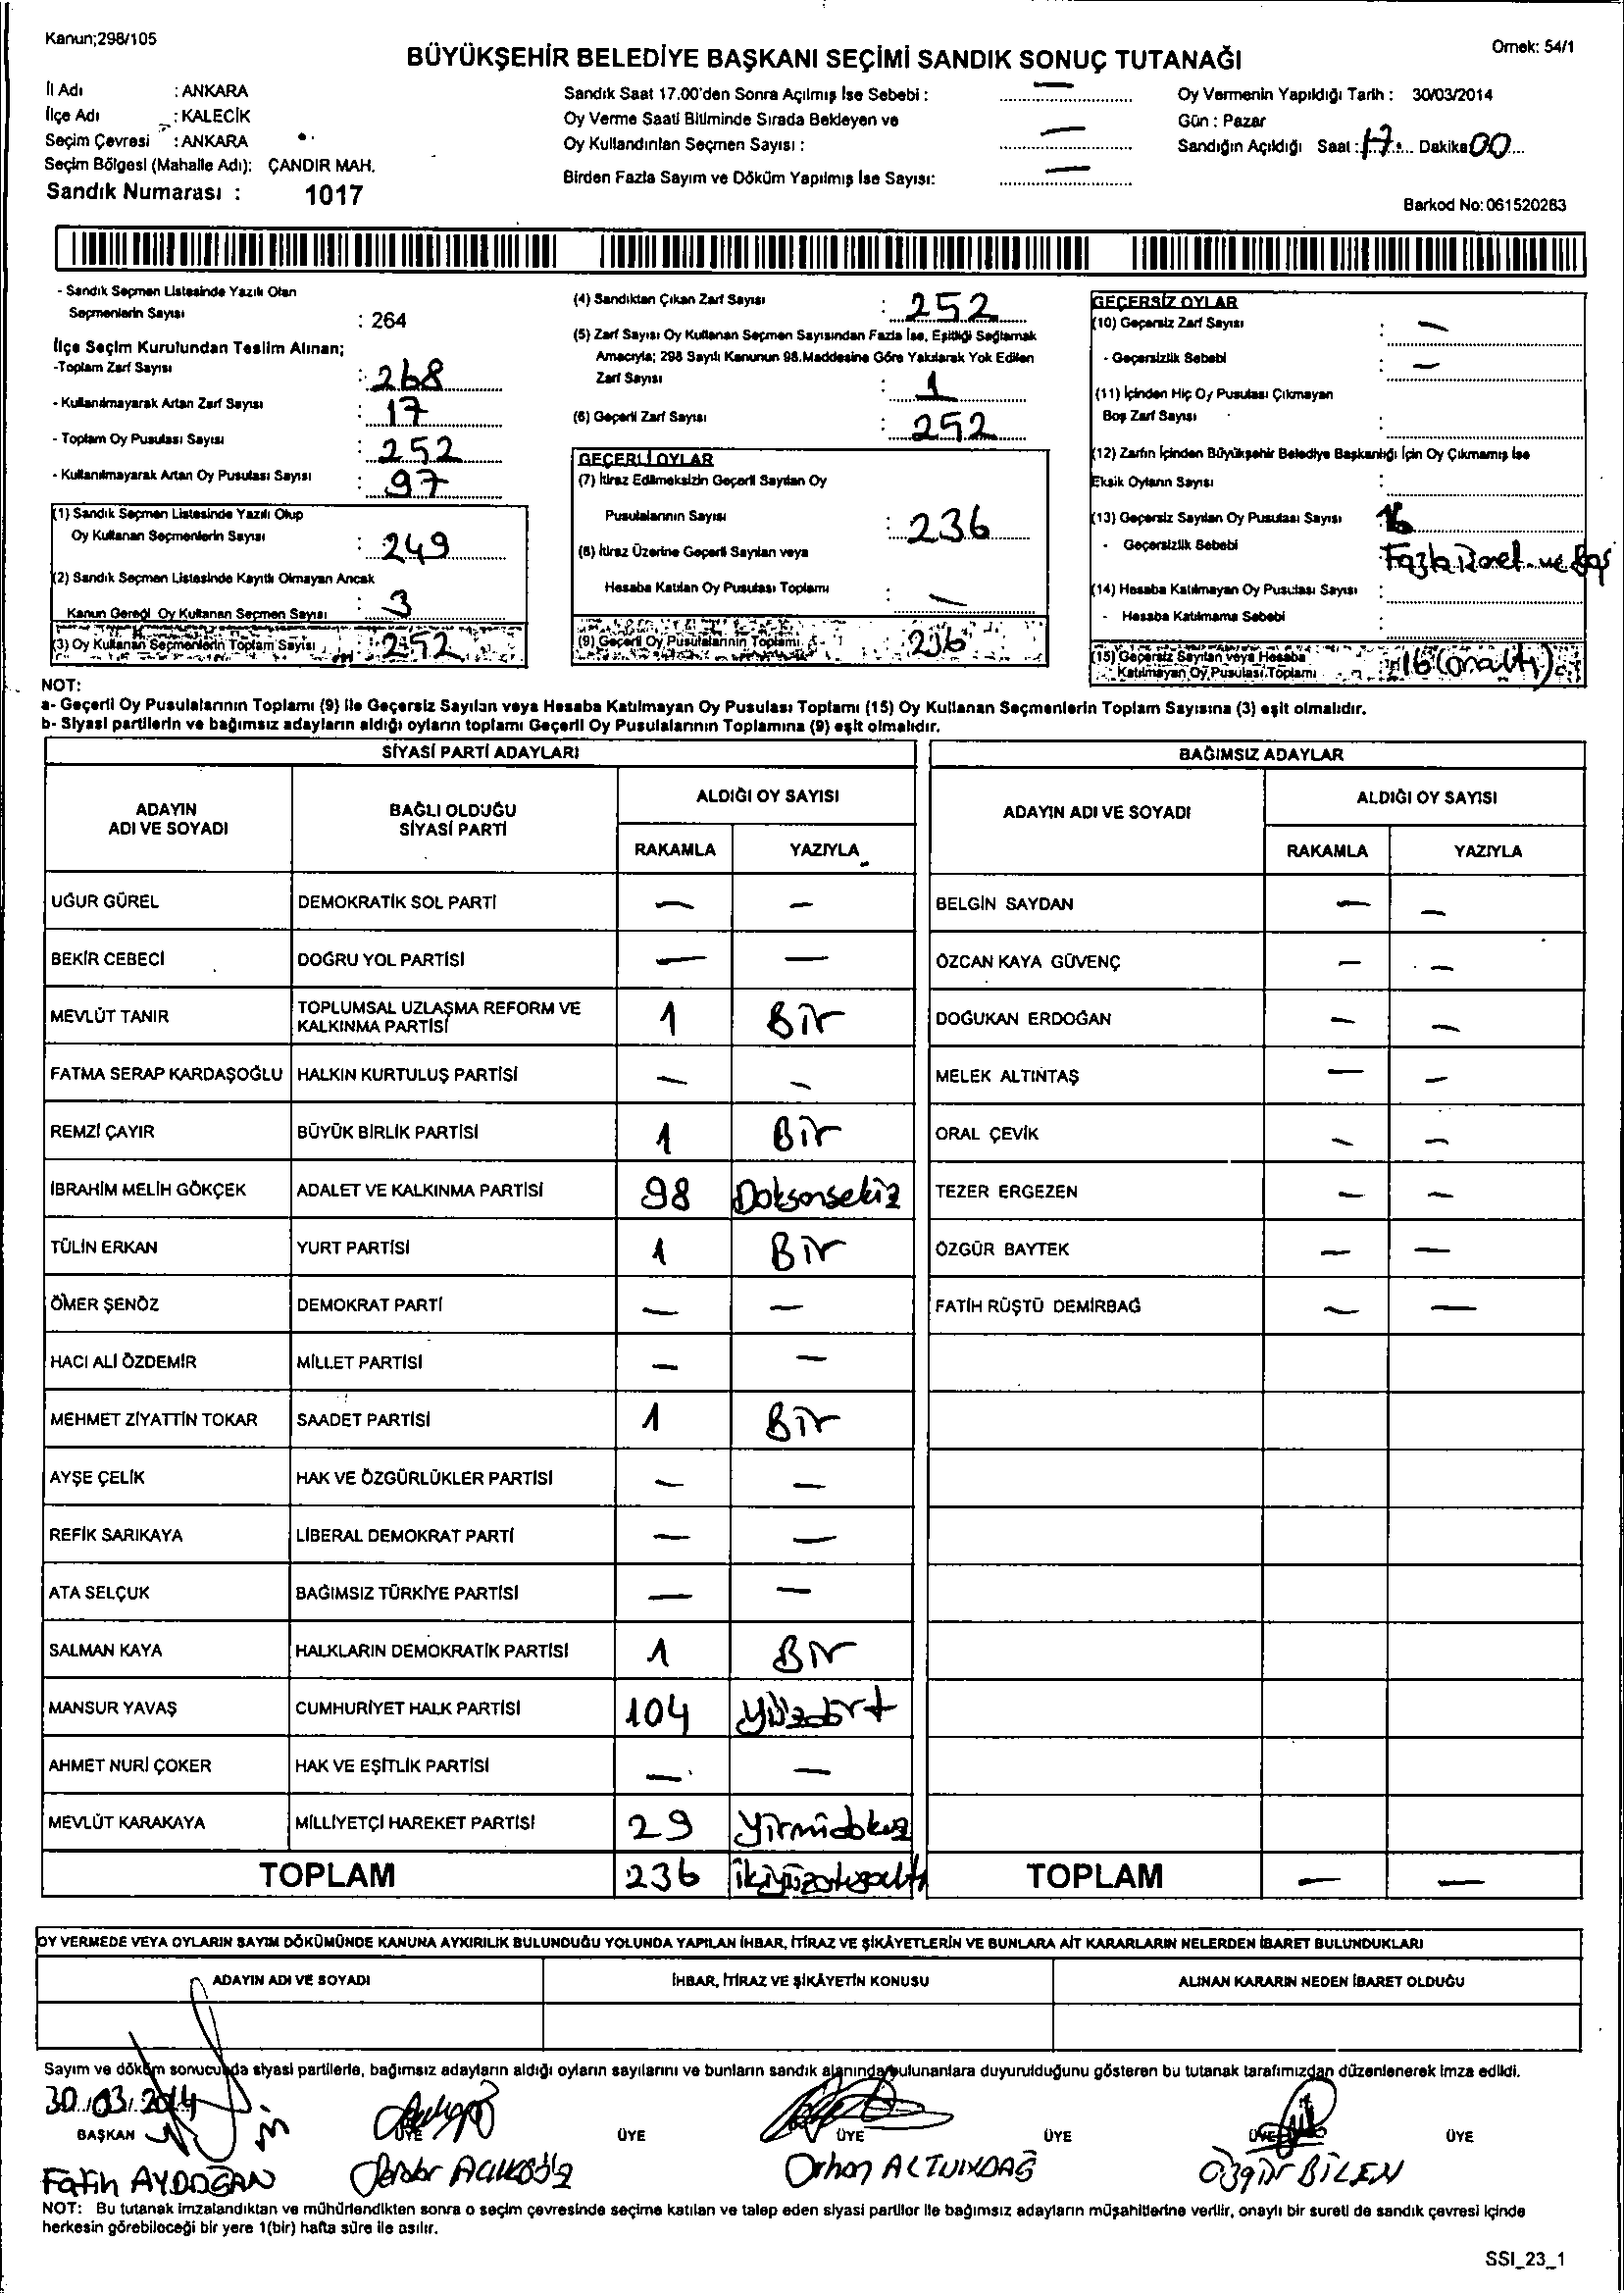 Kanun;298/105
BÜYÜKŞEHİR BELEDİYE BAŞKANI SEÇİMİ SANDIK SONUÇ TUTANAĞI
Örnek: 54/1
İl Adı : ANKARA
İlçe Adı : KALECİK
Seçim Çevresi : ANKARA
Seçim Bölgesi (Mahalle Adı): ÇANDIR MAH.
Sandık Numarası : 1017
Sandık Saat 17.00'den Sonra Açılmış İse Sebebi : —
Oy Verme Saati Bitiminde Sırada Bekleyen ve
Oy Kullandırılan Seçmen Sayısı : —
Birden Fazla Sayım ve Döküm Yapılmış İse Sayısı: —
Oy Vermenin Yapıldığı Tarih : 30/03/2014
Gün : Pazar
Sandığın Açıldığı Saat : 17 Dakika 00
Barkod No: 061520283
- Sandık Seçmen Listesinde Yazılı Olan
Seçmenlerin Sayısı : 264
İlçe Seçim Kurulundan Teslim Alınan;
-Toplam Zarf Sayısı : 268
- Kullanılmayarak Artan Zarf Sayısı : 17
- Toplam Oy Pusulası Sayısı : 252
- Kullanılmayarak Artan Oy Pusulası Sayısı : 97
(1) Sandık Seçmen Listesinde Yazılı Olup
Oy Kullanan Seçmenlerin Sayısı : 249
(2) Sandık Seçmen Listesinde Kayıtlı Olmayan Ancak
Kanun Gereği Oy Kullanan Seçmen Sayısı : 3
(3) Oy Kullanan Seçmenlerin Toplam Sayısı : 252
(4) Sandıktan Çıkan Zarf Sayısı : 252
(5) Zarf Sayısı Oy Kullanan Seçmen Sayısından Fazla İse, Eşitliği Sağlamak
Amacıyla; 298 Sayılı Kanunun 98.Maddesine Göre Yakılarak Yok Edilen
Zarf Sayısı : 1
(6) Geçerli Zarf Sayısı : 252
GEÇERLİ OYLAR
(7) İtiraz Edilmeksizin Geçerli Sayılan Oy
Pusulalarının Sayısı : 236
(8) İtiraz Üzerine Geçerli Sayılan veya
Hesaba Katılan Oy Pusulası Toplamı : —
(9) Geçerli Oy Pusulalarının Toplamı : 236
GEÇERSİZ OYLAR
(10) Geçersiz Zarf Sayısı : —
- Geçersizlik Sebebi : —
(11) İçinden Hiç Oy Pusulası Çıkmayan
Boş Zarf Sayısı :
(12) Zarfın İçinden Büyükşehir Belediye Başkanlığı İçin Oy Çıkmamış İse
Eksik Oyların Sayısı :
(13) Geçersiz Sayılan Oy Pusulası Sayısı 16
- Geçersizlik Sebebi Fazla ve Boş
(14) Hesaba Katılmayan Oy Pusulası Sayısı :
- Hesaba Katılmama Sebebi :
(15) Geçersiz Sayılan veya Hesaba
Katılmayan Oy Pusulası Toplamı : 16 (onaltı)
NOT:
a- Geçerli Oy Pusulalarının Toplamı (9) ile Geçersiz Sayılan veya Hesaba Katılmayan Oy Pusulası Toplamı (15) Oy Kullanan Seçmenlerin Toplam Sayısına (3) eşit olmalıdır.
b- Siyasi partilerin ve bağımsız adayların aldığı oyların toplamı Geçerli Oy Pusulalarının Toplamına (9) eşit olmalıdır.
SİYASİ PARTİ ADAYLARI
ADAYIN ADI VE SOYADI BAĞLI OLDUĞU SİYASİ PARTİ ALDIĞI OY SAYISI
RAKAMLA YAZIYLA
UĞUR GÜREL DEMOKRATİK SOL PARTİ — —
BEKİR CEBECİ DOĞRU YOL PARTİSİ — —
MEVLÜT TANIR TOPLUMSAL UZLAŞMA REFORM VE KALKINMA PARTİSİ 1 Bir
FATMA SERAP KARDAŞOĞLU HALKIN KURTULUŞ PARTİSİ — —
REMZİ ÇAYIR BÜYÜK BİRLİK PARTİSİ 1 Bir
İBRAHİM MELİH GÖKÇEK ADALET VE KALKINMA PARTİSİ 98 Doksansekiz
TÜLİN ERKAN YURT PARTİSİ 1 Bir
ÖMER ŞENÖZ DEMOKRAT PARTİ — —
HACI ALİ ÖZDEMİR MİLLET PARTİSİ — —
MEHMET ZİYATTİN TOKAR SAADET PARTİSİ 1 Bir
AYŞE ÇELİK HAK VE ÖZGÜRLÜKLER PARTİSİ — —
REFİK SARIKAYA LİBERAL DEMOKRAT PARTİ — —
ATA SELÇUK BAĞIMSIZ TÜRKİYE PARTİSİ — —
SALMAN KAYA HALKLARIN DEMOKRATİK PARTİSİ 1 Bir
MANSUR YAVAŞ CUMHURİYET HALK PARTİSİ 104 yüzdört
AHMET NURİ ÇOKER HAK VE EŞİTLİK PARTİSİ — —
MEVLÜT KARAKAYA MİLLİYETÇİ HAREKET PARTİSİ 29 yirmidokuz
TOPLAM 236 ikiyüzotuzaltı
BAĞIMSIZ ADAYLAR
ADAYIN ADI VE SOYADI ALDIĞI OY SAYISI
RAKAMLA YAZIYLA
BELGİN SAYDAN — —
ÖZCAN KAYA GÜVENÇ — —
DOĞUKAN ERDOĞAN — —
MELEK ALTINTAŞ — —
ORAL ÇEVİK — —
TEZER ERGEZEN — —
ÖZGÜR BAYTEK — —
FATİH RÜŞTÜ DEMİRBAĞ — —
TOPLAM — —
OY VERMEDE VEYA OYLARIN SAYIM DÖKÜMÜNDE KANUNA AYKIRILIK BULUNDUĞU YOLUNDA YAPILAN İHBAR, İTİRAZ VE ŞİKÂYETLERİN VE BUNLARA AİT KARARLARIN NELERDEN İBARET BULUNDUKLARI
ADAYIN ADI VE SOYADI İHBAR, İTİRAZ VE ŞİKÂYETİN KONUSU ALINAN KARARIN NEDEN İBARET OLDUĞU
Sayım ve döküm sonucunda siyasi partilerle, bağımsız adayların aldığı oyların sayılarını ve bunların sandık alanında bulunanlara duyurulduğunu gösteren bu tutanak tarafımızdan düzenlenerek imza edildi.
30.03.2014
BAŞKAN ÜYE ÜYE ÜYE ÜYE ÜYE ÜYE
Fatih AYDOĞAN Orhan ALTUNDAĞ Özgür BİLEN
NOT: Bu tutanak imzalandıktan ve mühürlendikten sonra o seçim çevresinde seçime katılan ve talep eden siyasi partiler ile bağımsız adayların müşahitlerine verilir, onaylı bir sureti de sandık çevresi içinde
herkesin görebileceği bir yere 1(bir) hafta süre ile asılır.
SSI_23_1